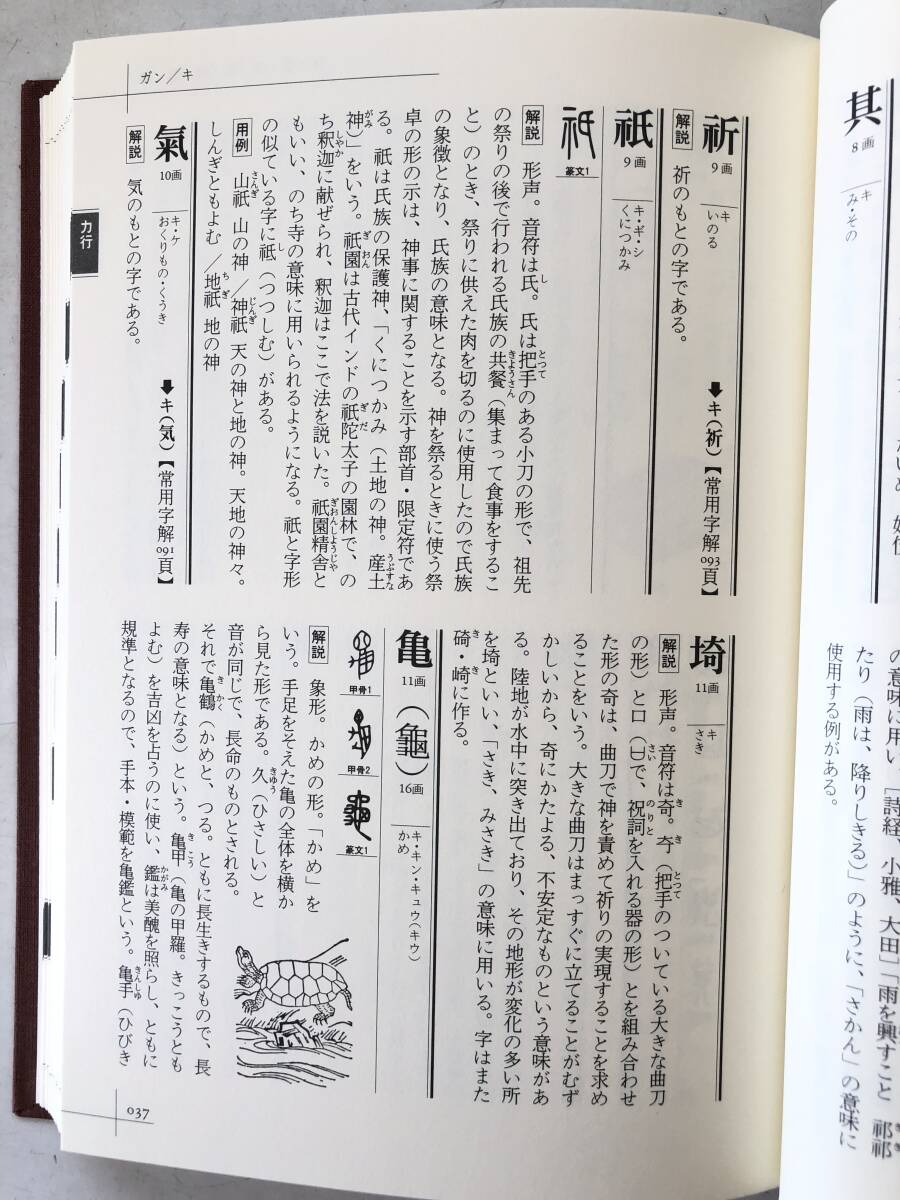 ガン/キ
祈
9画
キ
いのる
➡キ(祈)【常用字解093頁】
解説 祈のもとの字である。
祇
9画
キ・ギ・シ
くにつかみ
篆文1
解説 形声。音符は氏。氏は把手のある小刀の形で、祖先
の祭りの後で行われる氏族の共餐(集まって食事をするこ
と)のとき、祭りに供えた肉を切るのに使用したので氏族
の象徴となり、氏族の意味となる。神を祭るときに使う祭
卓の形の示は、神事に関することを示す部首・限定符であ
る。祇は氏族の保護神、「くにつかみ(土地の神。産土
神)」をいう。祇園は古代インドの祇陀太子の園林で、の
ち釈迦に献ぜられ、釈迦はここで法を説いた。祇園精舎と
もいい、のち寺の意味に用いられるようになる。祇と字形
の似ている字に祗(つつしむ)がある。
用例 山祇 山の神/神祇 天の神と地の神。天地の神々。
しんぎともよむ/地祇 地の神
氣
10画
キ・ケ
おくりもの・くうき
➡キ(気)【常用字解091頁】
解説 気のもとの字である。
カ行
埼
11画
キ
さき
解説 形声。音符は奇。奇(把手のついている大きな曲刀
の形)と口(𠙵で、祝詞を入れる器の形)とを組み合わせ
た形の奇は、曲刀で神を責めて祈りの実現することを求め
ることをいう。大きな曲刀はまっすぐに立てることがむず
かしいから、奇にかたよる、不安定なものという意味があ
る。陸地が水中に突き出ており、その地形が変化の多い所
を埼といい、「さき、みさき」の意味に用いる。字はまた
碕・崎に作る。
亀
11画
(龜)
16画
キ・キン・キュウ(キウ)
かめ
甲骨1
甲骨2
篆文1
解説 象形。かめの形。「かめ」を
いう。手足をそえた亀の全体を横か
ら見た形である。久(ひさしい)と
音が同じで、長命のものとされる。
それで亀鶴(かめと、つる。ともに長生きするもので、長
寿の意味となる)という。亀甲(亀の甲羅。きっこうとも
よむ)を吉凶を占うのに使い、鑑は美醜を照らし、ともに
規準となるので、手本・模範を亀鑑という。亀手(ひびき
037
其
8画
キ
み・その
の意味に用い、[詩経、小雅、大田]「雨を興すこと 祁祁
たり(雨は、降りしきる)」のように、「さかん」の意味に
使用する例がある。